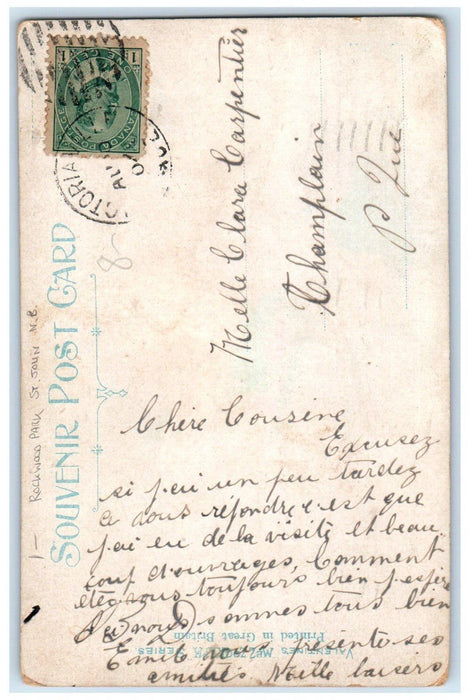 ONE CENT
1 1
CANADA POSTAGE
VICTORIAV
AU
SOUVENIR POST CARD
Rockwood Park St. John N.B.
1-
8-
Melle Clara Carpentier
Champlain
P Que
Chère Cousine
Excusez
si j'ai un peu tardez
a vous répondre c'est que
j'ai eu de la visite et beau
coup d'ouvrages, Comment
etes vous toujours bien j'espère
nous sommes tous bien
Emile vous présente ses
amitiés Mille baisers
VALENTINE'S SERIES
Printed in Great Britain